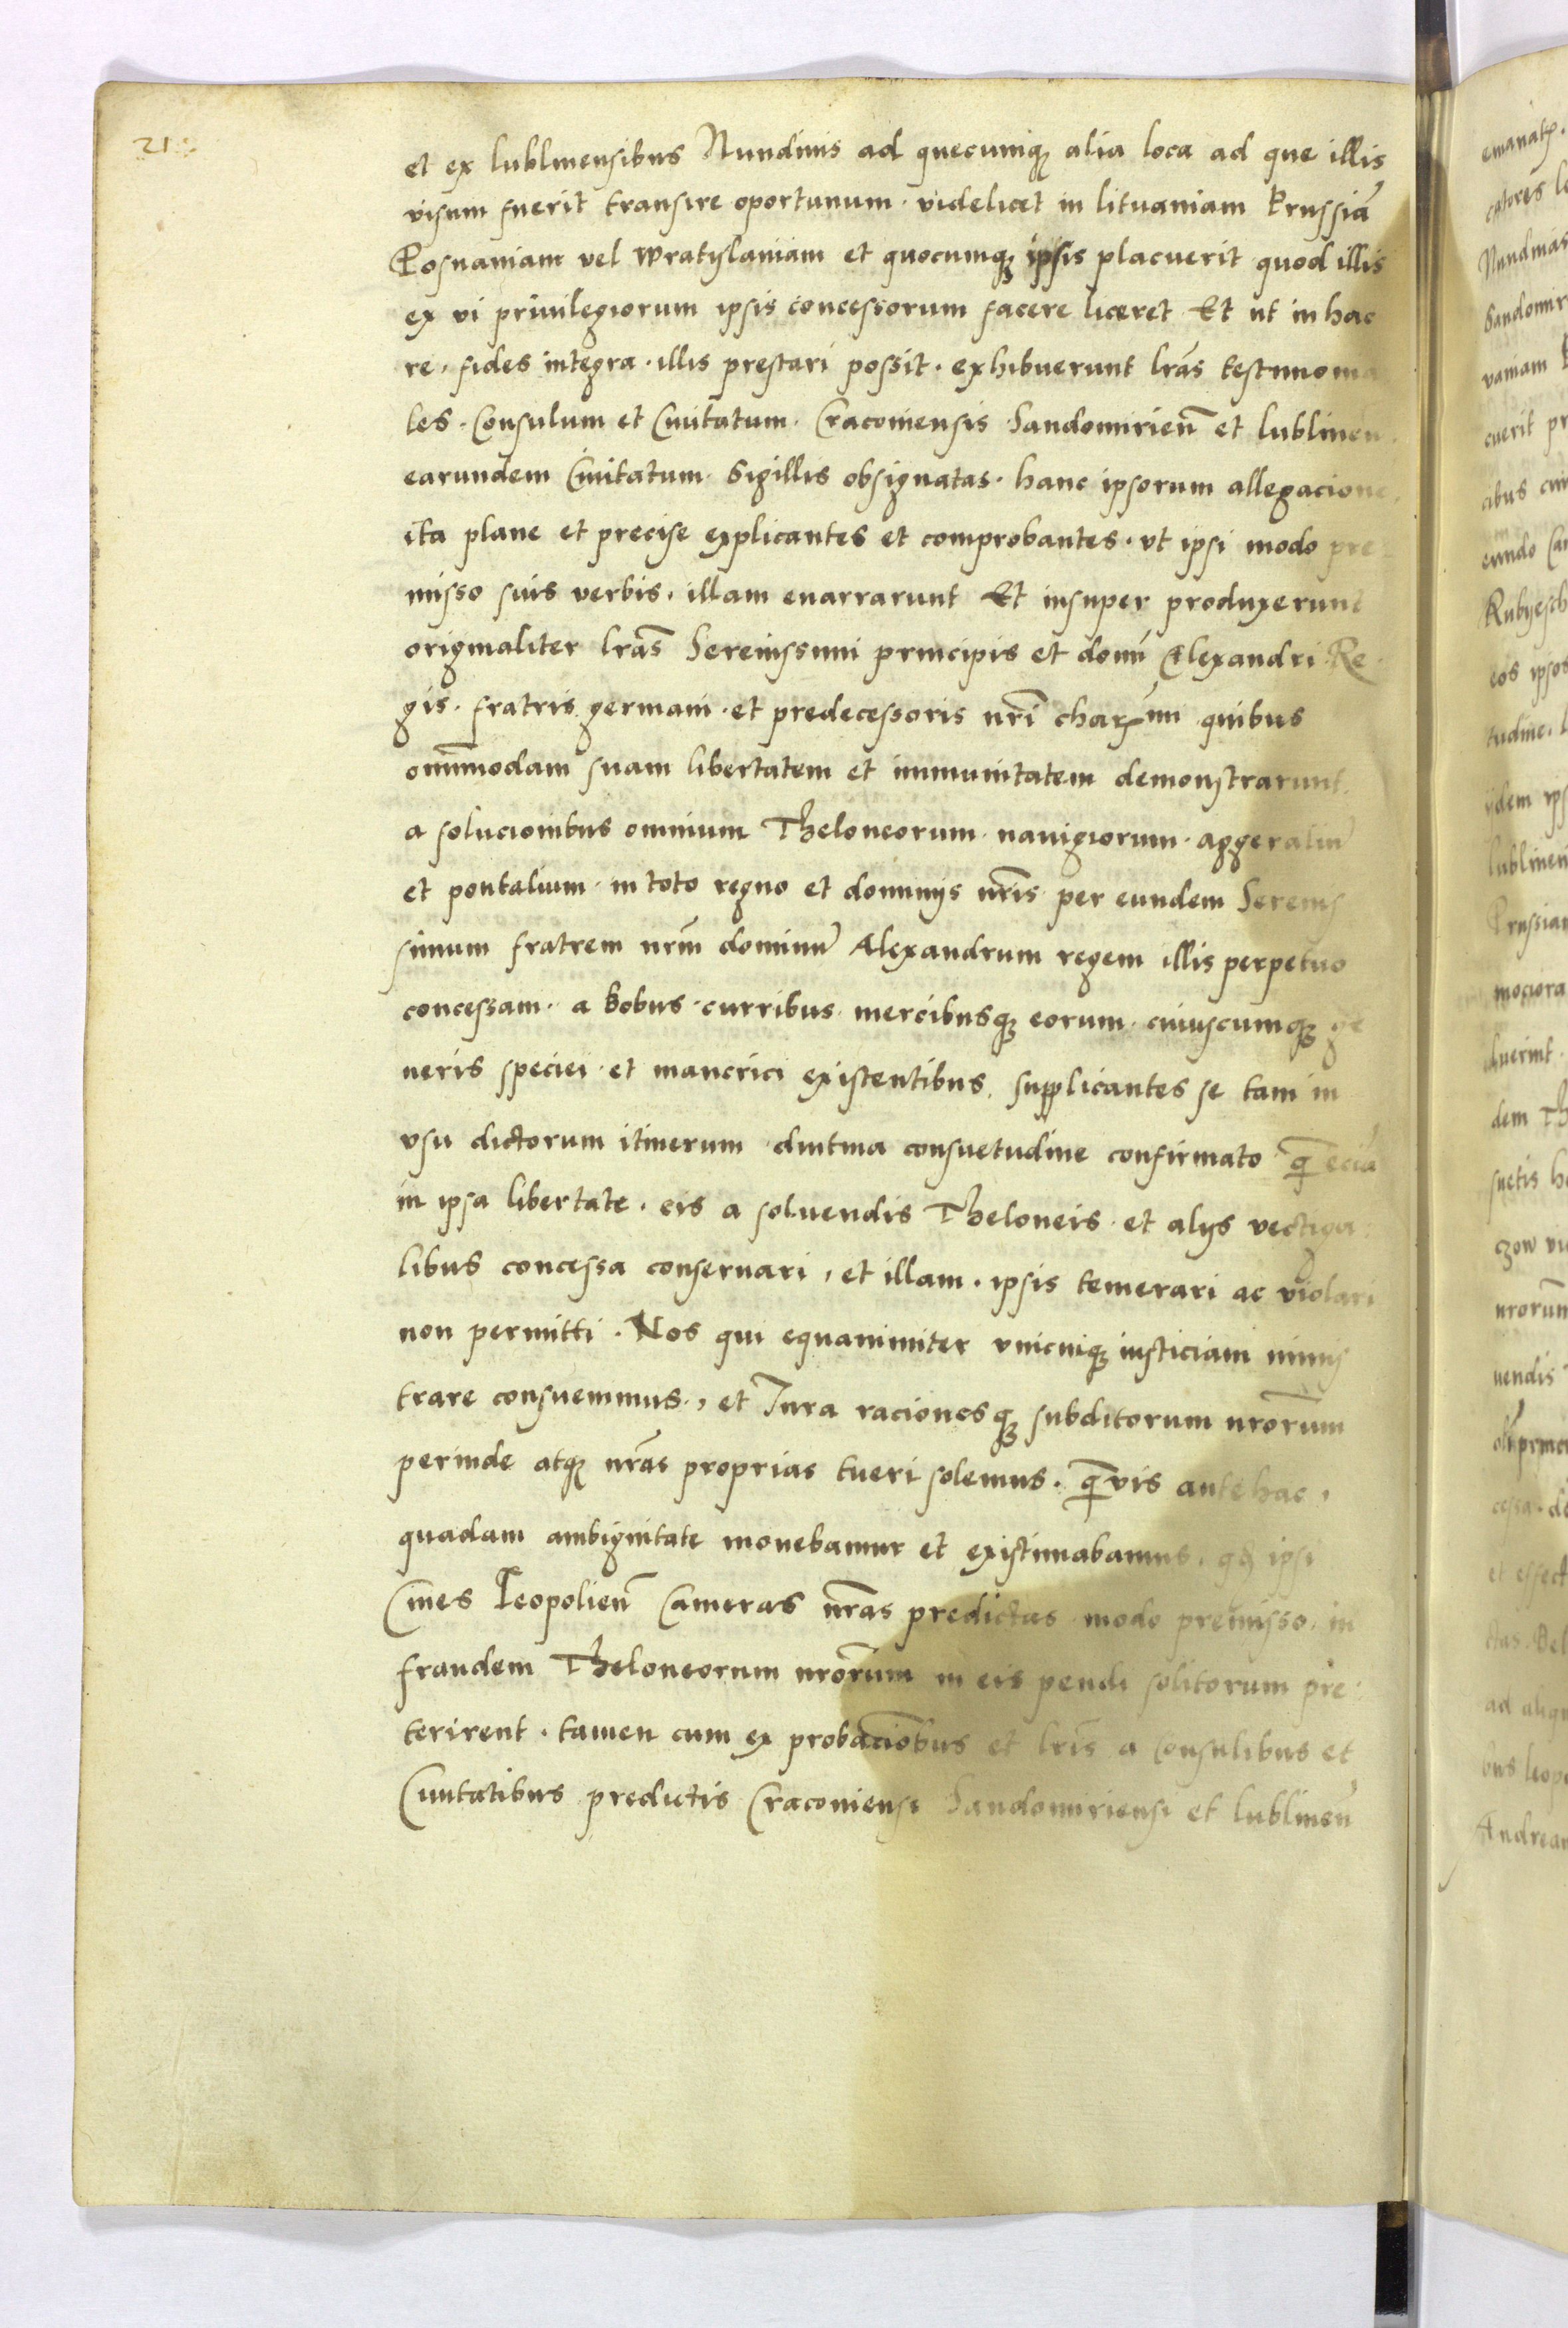 et ex lublinensibus Nundinis ad quecumqꝫ alia loca ad que illis
visum fuerit transire oportunum · videlicet in lituaniam Prussiā
Posnaniam vel Wratyslaniam et quocumqꝫ ipsis placuerit quod illis
ex vi priuilegiorum ipsis concessorum facere liceret Et ut in hac
re, fides integra · illis prestari possit · exhibuerunt lrās testimonia
les · Consulum et Ciuitatum · Cracouiensis Sandomirien̄ et lublinen
earundem Ciuitatum · Sigillis obsignatas · hanc ipsorum allegacione
ita plane et precise explicantes et comprobantes · vt ipsi modo pre
misso suis verbis · illam enarrarunt Et insuper produxerunt
originaliter lrās Serenissimi principis et domī Alexandri Re
gis · fratris germani · et predecessoris nrī charꝫimi quibus
om̄imodam suam libertatem et immunitatem demonstrarunt
a solucionibus omnium Theloneorum · nauigiorum · aggeraliū
et pontalium · in toto regno et dominijs nrīs per eundem Serenis
simum fratrem nrm̄ dominū Alexandrum regem illis perpetuo
concessam · a bobus · curribus mercibusqꝫ eorum · cuiuscumqꝫ ge
neris speciei · et manerici existentibus, supplicantes se tam in
vsu dictorum itinerum diutina consuetudine confirmato · q̄ eciā
in ipsa libertate · eis a soluendis Theloneis · et alijs vectiga
libus concessa conseruari, et illam · ipsis temerari ac violari
non permitti · Nos qui equanimiter vnicuiqꝫ iusticiam minis
trare consueuimus ·, et Jura racionesqꝫ subditorum nrorūm
perinde atqꝫ nrās proprias tueri solemus · q̄vis antehac,
quadam ambiguitate mouebamur et existimabamus · qꝫ ipsi
Ciues Leopolien̄ Cameras nrās predictas modo premisso · in
fraudem Theloneorum nrorūm in eis pendi solitorum pre
terirent · tamen cum ex probaciōbus et lrīs a Consulibus et
Ciuitatibus predictis Cracouiensi Sandomiriensi et lublinen̄
emanatꝫ
Nundinas
Sandomir
vaniam
cuerit pr
eundo
eos ipsos
tudine
lublinen
Prussiam
duerint
dem Th
suetis
nrorūm
uendis
cessa · de
et effect
Andream